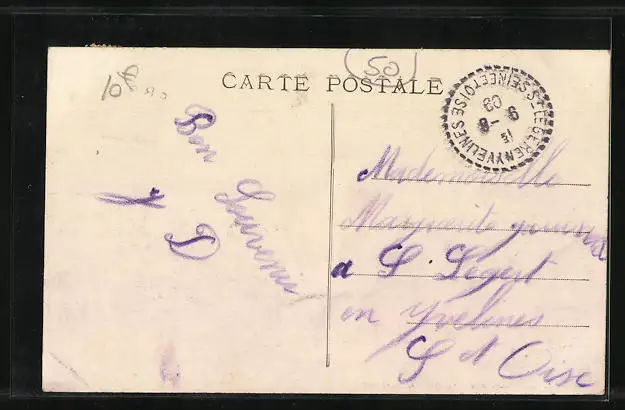 (50)
CARTE POSTALE
10f
Bon
Souvenir
D
Mademoiselle
Marguerite
a S. Léger
en Yvelines
S et Oise
ST-LEGER EN YVELINES SEINE ET OISE
6-8
09